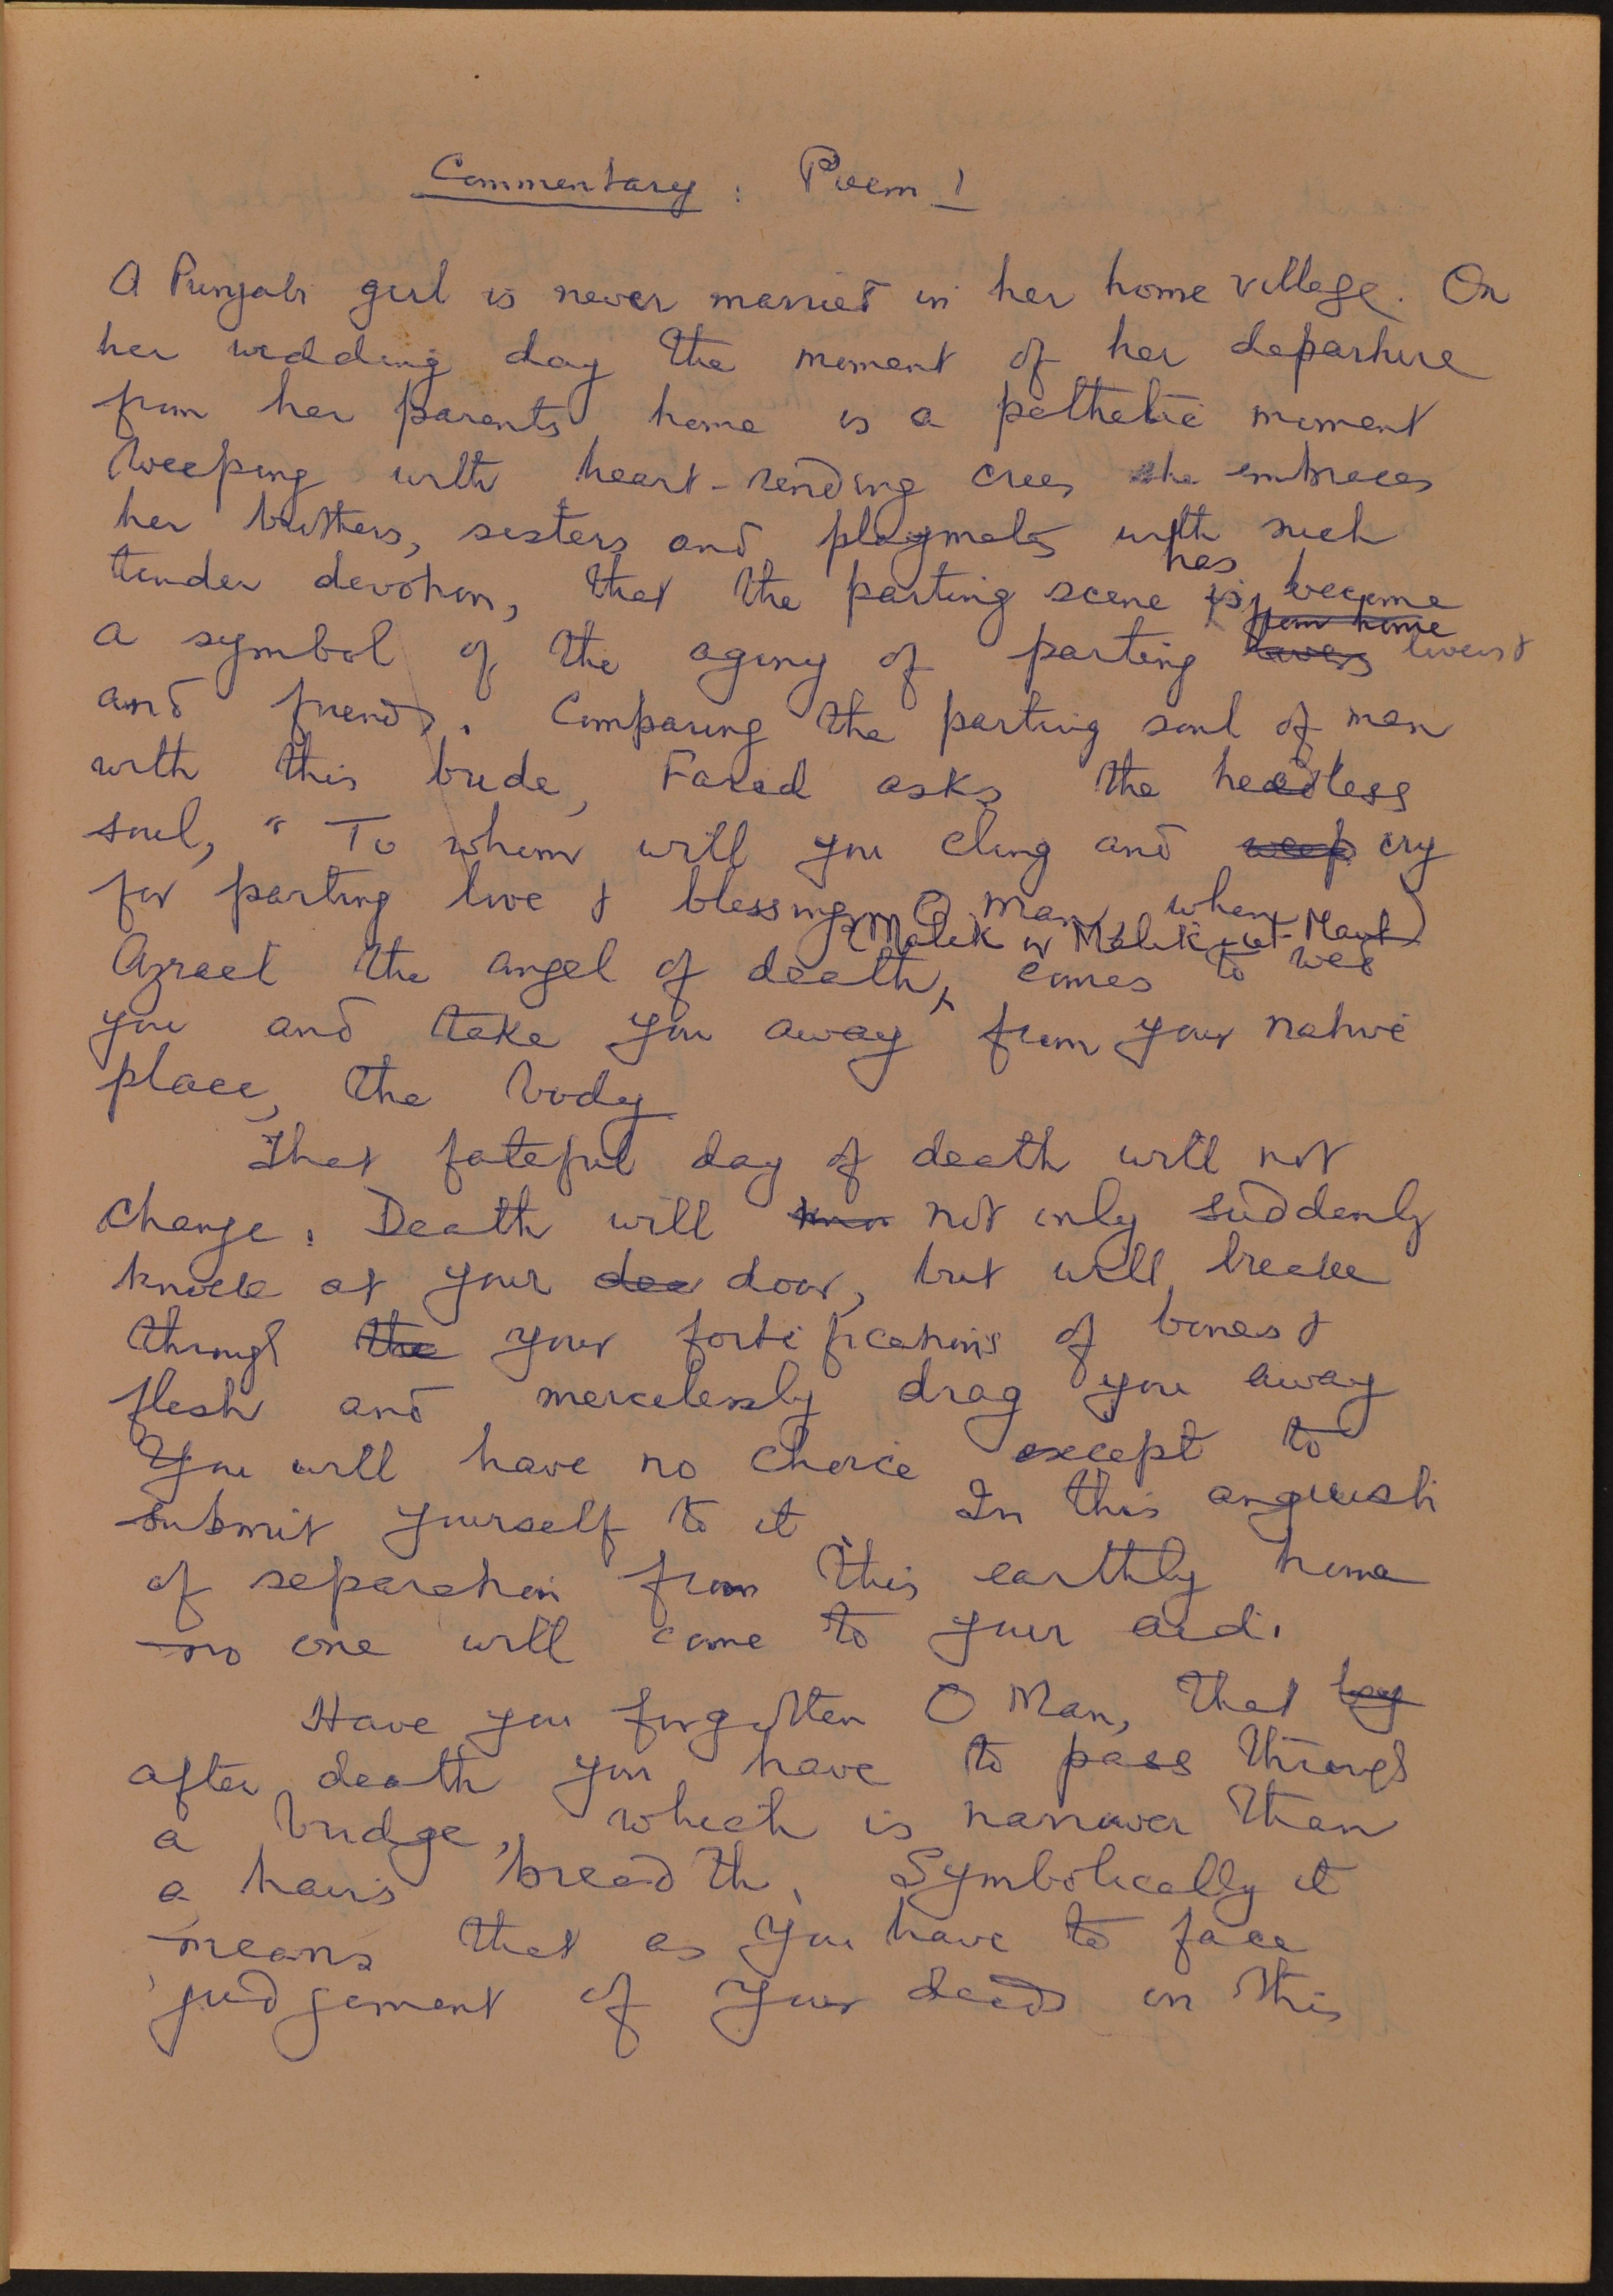 Commentary : Poem 1
A Punjabi girl is never married in her home village. On
her wedding day the moment of her departure
from her parents home is a pathetic moment
Weeping with heart-rending cries she embraces
her brothers, sisters and playmates with such
tender devotion, that the parting scene is has become
a symbol of the agony of parting from home lovers &
and friends. Comparing the parting soul of man
with this bride, Farid asks the heedless
soul, "To whom will you cling and weep cry
for parting love & blessings O man, when
(Malik or Malik-ul-Maut)
Azrael the angel of death, comes to wed
you and take you away from your native
place, the body
That fateful day of death will not
change. Death will not only suddenly
knock at your doo door, but will break
through the your fortifications of bones &
flesh and mercilessly drag you away
You will have no choice except to
submit yourself to it. In this anguish
of separation from this earthly home
no one will come to your aid.
Have you forgotten O Man, that
after death you have to pass through
a bridge, which is narrower than
a hair's breadth. Symbolically it
means that as you have to face
judgement of your deeds in this